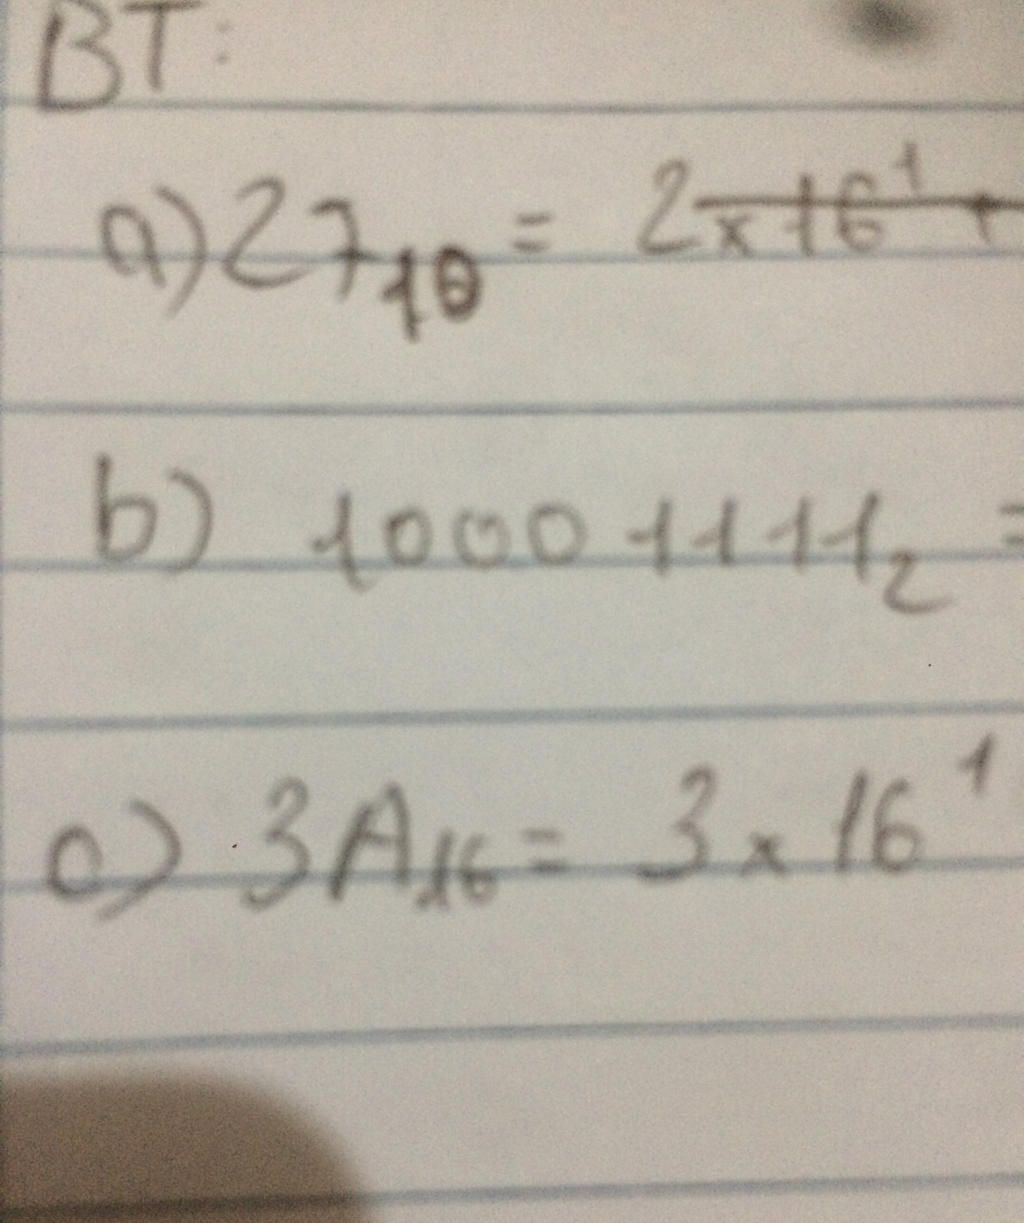 BT:
a) 27₁₀ = 2 x 16¹ +
b) 10001111₂ =
c) 3A₁₆ = 3 x 16¹